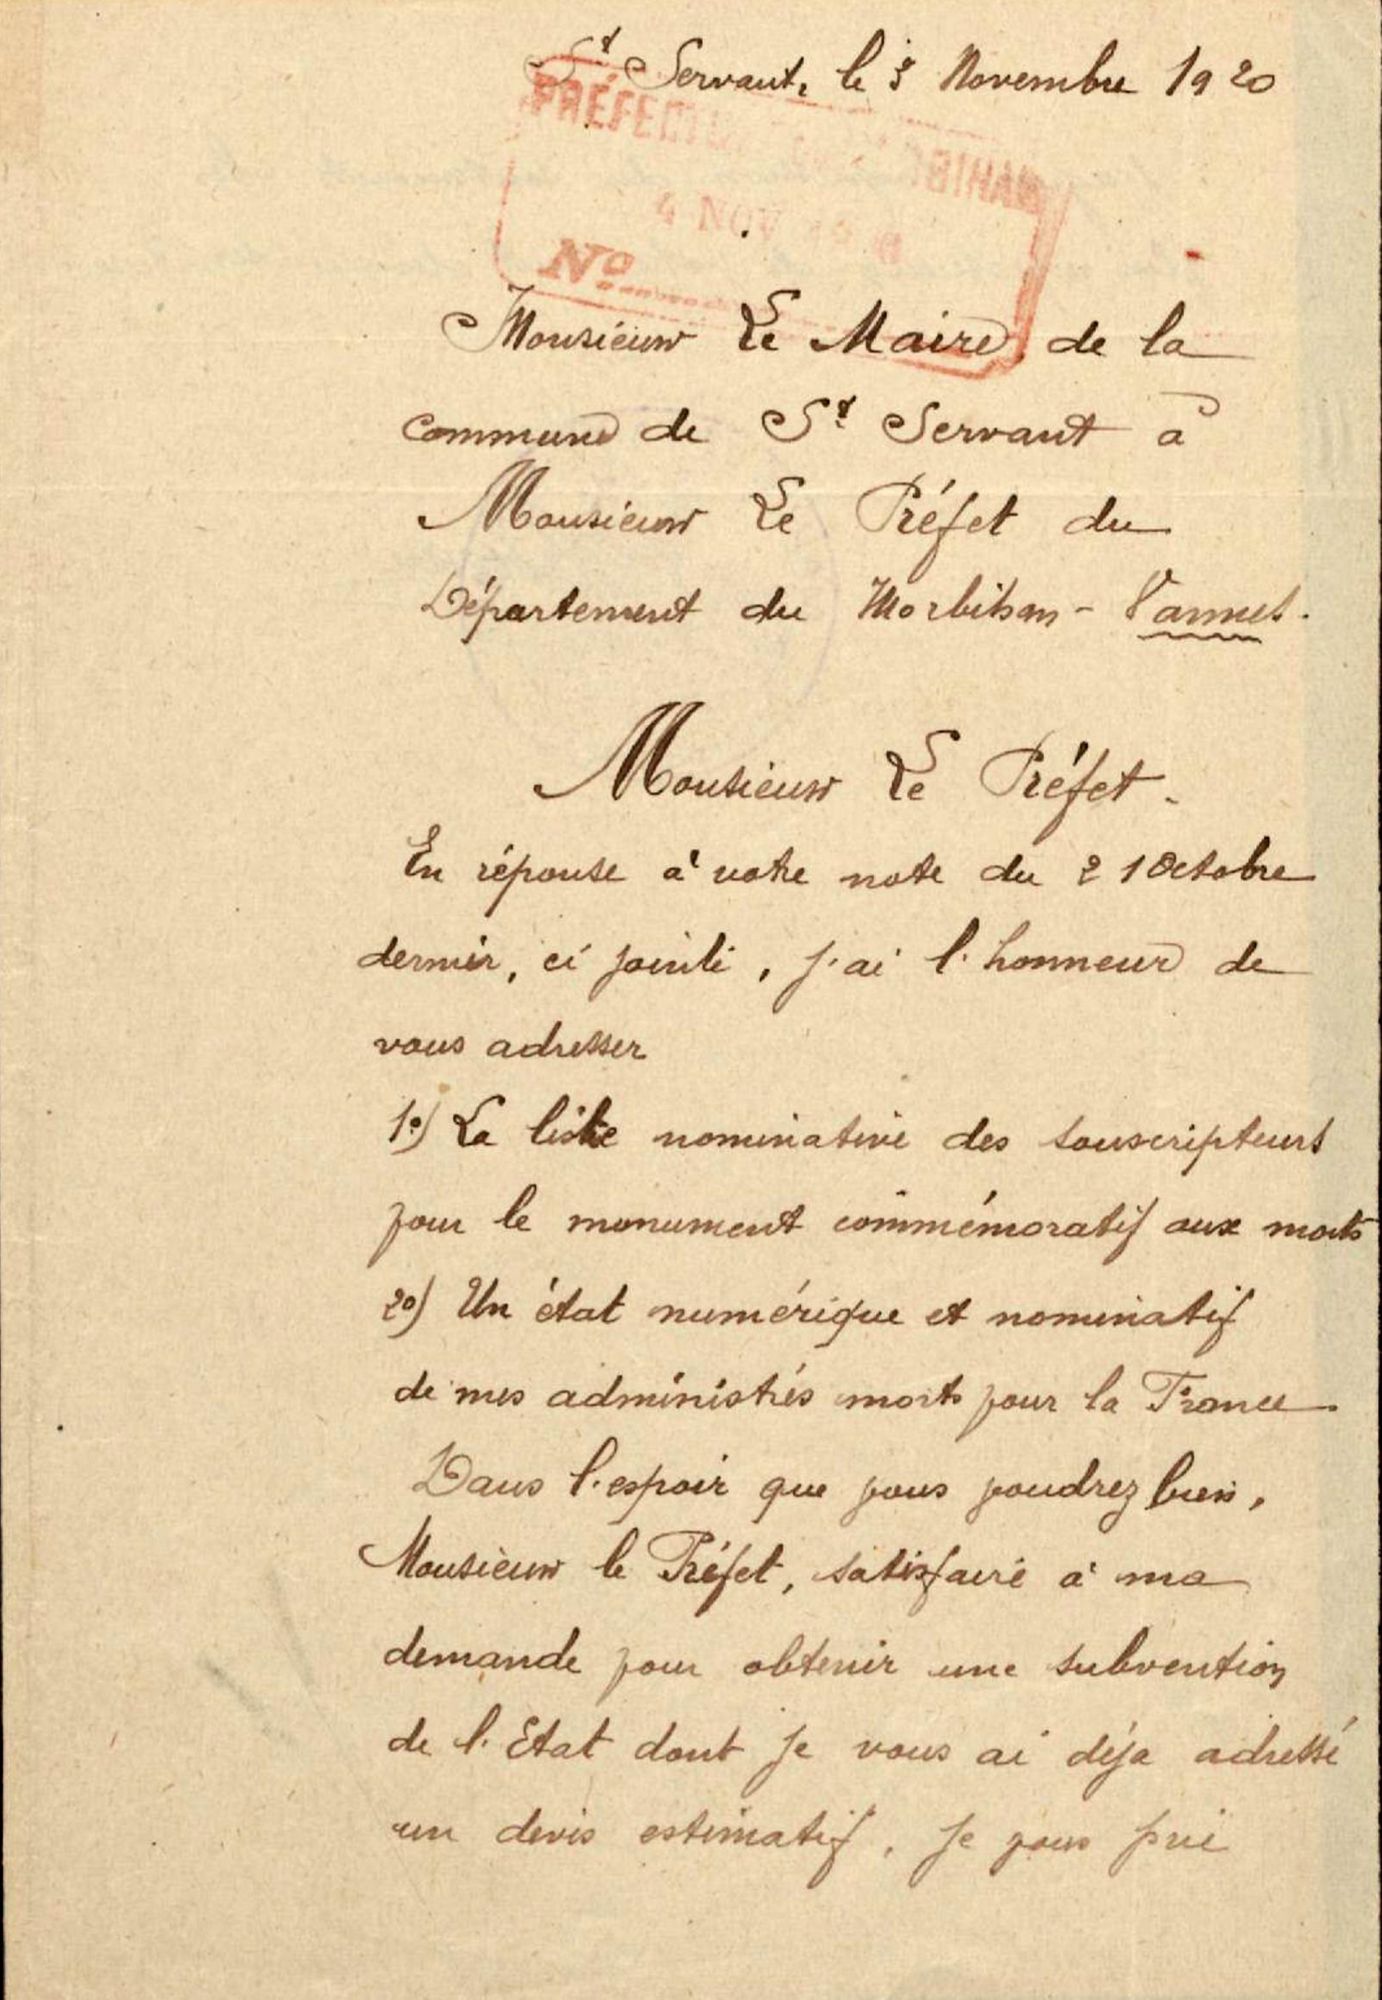 St Servant, le 3 Novembre 1920
PRÉFECTURE MORBIHAN
4 NOV
No
Monsieur Le Maire de la
commune de St Servant à
Monsieur Le Préfet du
Département du Morbihan - Vannes.
Monsieur Le Préfet.
En réponse à votre note du 21 Octobre
dernier, ci jointe, j'ai l'honneur de
vous adresser
1o) La liste nominative des souscripteurs
pour le monument commémoratif aux morts
2o) Un état numérique et nominatif
de mes administrés morts pour la France.
Dans l'espoir que vous voudrez bien,
Monsieur le Préfet, satisfaire à ma
demande pour obtenir une subvention
de l'Etat dont je vous ai déja adressé
un devis estimatif, je vous prie